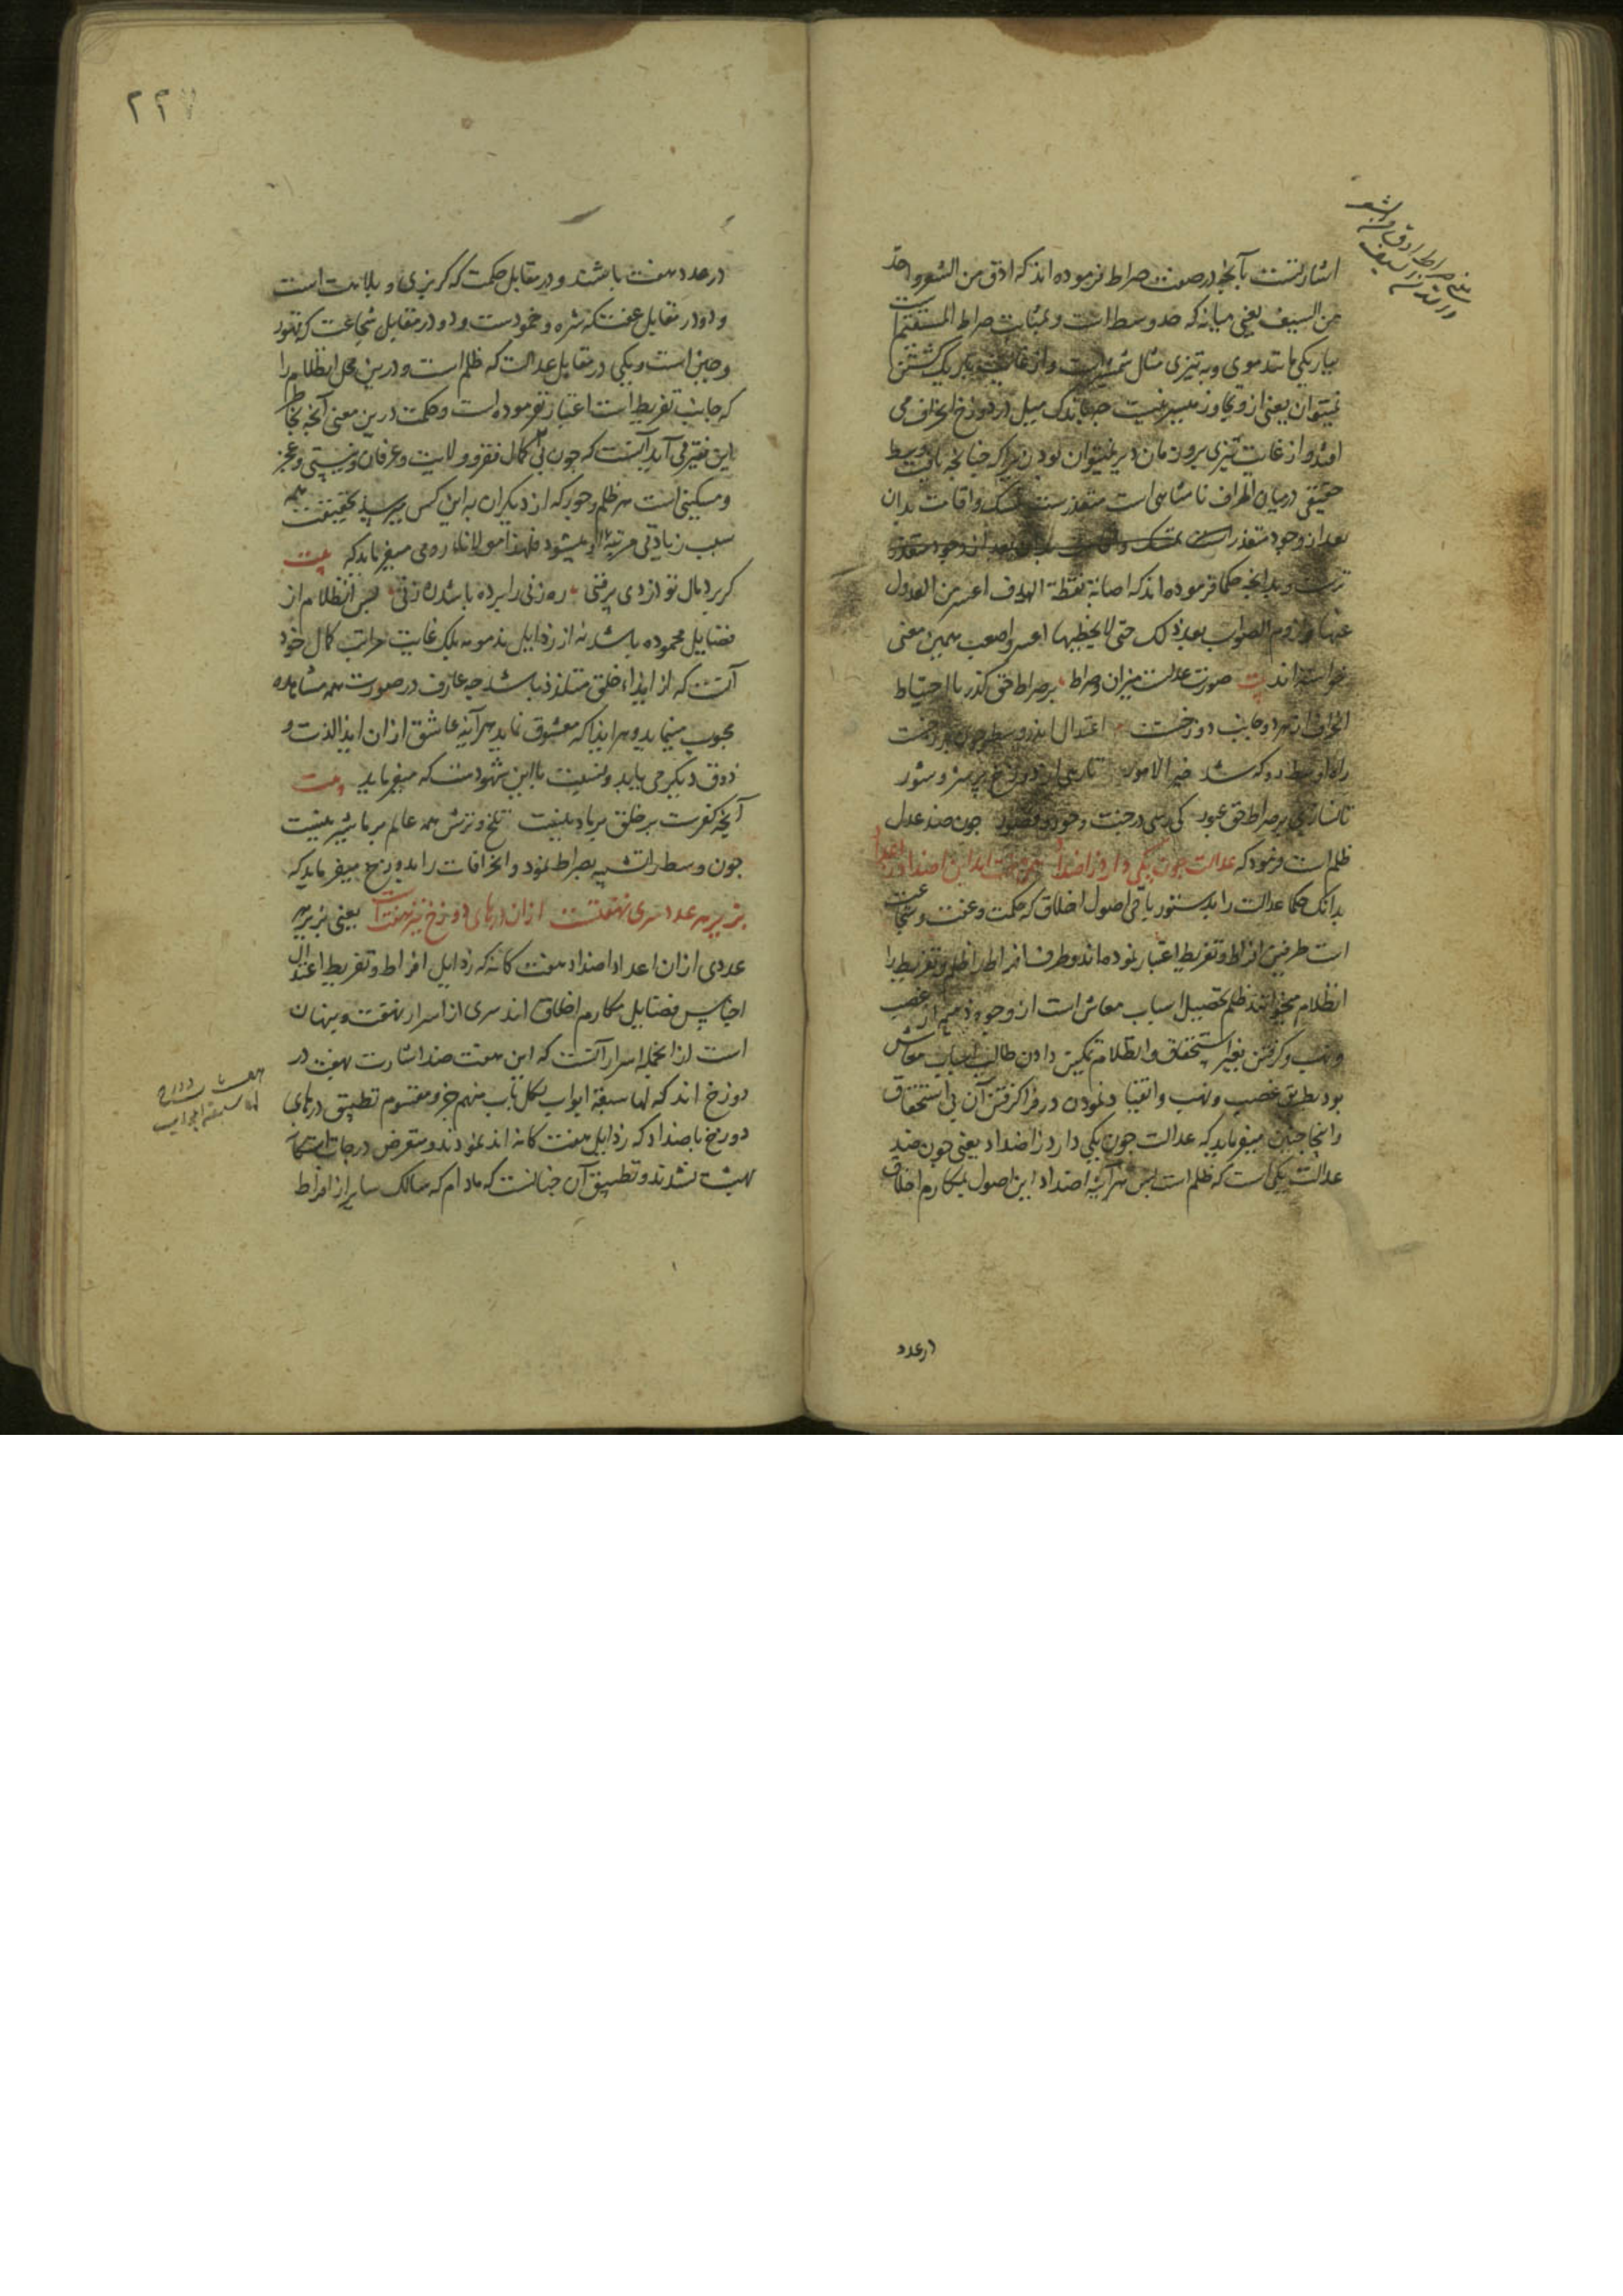 اشارتست بآنچه در صفت صراط فرموده اند که ادق من الشعر و احد
من السیف یعنی میانه که حد وسط است و بمثابت صراط المستقیم است
بباریکی مانند موی و به تیزی مثال شمشیر است و از غایت باریک گشتن
نمیتوان یعنی از و تجاوز میسر نیست چه باندک میل در دوزخ انحراف می
افتد و از غایت تیزی برو زمان دیر نمیتوان بودن زیرا که چنانچه یافت وسط
حقیقی در میان اطراف نامتناهی است متعذرست تمسک و اقامت بدان
بعد از وجود متعذر است
ترست و بدانچه حکما فرموده اند که اصابة نقطة الهدف اعسر من العدول
عنها و لزوم الصواب بعد ذلک حتی لا یخطیها اعسر و اصعب همین معنی
خواسته اند بیت صورت عدالت میزان و صراط بر صراط حق گذر با احتیاط
انحراف از هر دو جانب دوزخست اعتدال اندر وسط چون برزخست
راه اوسط رو که شد خیر الامور تا رهی از دوزخ پر سر و شور
تا نسازی بر صراط حق عبور کی رسی در جنت و حور و قصور چون ضد عدل
ظلم است فرمود که عدالت چون یکی دارد ز اضداد همی هفت آمد این اضداد ز اعداد
بدانکه حکما عدالت را بدستور باقی اصول اخلاق که حکمت و عفت و شجاعت
است طرفین افراط و تفریط اعتبار نموده اند و طرف افراط را ظلم و تفریط را
انظلام میخوانند ظلم تحصیل اسباب معاش است از وجوه ذمیم از غصب
و نهب و گرفتن بغیر استحقاق و انظلام تمکین دادن طالب اسباب معاش
بود بطریق غصب و نهب و انقیاد نمودن در فرا گرفتن آن بی استحقاق
و اینجا چنین میفرماید که عدالت چون یکی دارد ز اضداد یعنی چون ضد
عدالت یکی است که ظلم است پس هر آینه اضداد این اصول مکارم اخلاق
در عدد
۲۲۷
در عدد هفت باشند دو در مقابل حکمت که گربزی و بلاهت است
و دو در مقابل عفت که شره و خمود است و دو در مقابل شجاعت که تهور
و جبن است و یکی در مقابل عدالت که ظلم است و درین محل انظلام را
که جانب تفریط است اعتبار نفرموده است و حکمت درین معنی آنچه بخاطر
این فقیر می آید آنست که چون کمال فقر و ولایت و عرفان و نیستی و عجز
و مسکینی است هر ظلم و جور که از دیگران به این کس میرسد بحقیقت همه
سبب زیادتی مرتبه او میشود فلهذا مولانا رومی میفرماید که بیت
گر برد مال تو از دی پر فنی ره زنی را برده باشد ره زنی پس انظلام از
فضایل محموده باشد نه از رذایل مذمومه بلکه غایت مراتب کمال خود
آنست که از ایذاء خلق متلذذ باشد چه عارف در صورت همه مشاهده
محبوب مینماید و هر ایذا که معشوق نماید هر آینه عاشق از آن ایذا لذت و
ذوق دیگر می یابد و نسبت با این شهود است که میفرماید بیت
آنچه کفرست بر خلق بر ما دینست تلخ و ترش همه عالم بر ما شیرینست
چون وسط را تشبیه بصراط نمود و انحرافات را بدوزخ میفرماید که
بزیر هر عدد سری نهفتست از آن درهای دوزخ نیز هفت است یعنی بزیر هر
عددی از آن اعداد اضداد هفت کانه که رذایل افراط و تفریط اعتدال
اجناس فضایل مکارم اخلاق اند سری از اسرار نهفته و پنهان
است از انجمله اسرار آنست که این هفت ضد اشارت بهفت در
دوزخ اند که لها سبعة ابواب لکل باب منهم جزو مقسوم تطبیق درهای
دوزخ باضداد که رذایل هفت کانه اند نمودند و متعرض درجات هشتگانه
بهشت نشدند و تطبیق آن چنانست که مادام که سالک سایر از افراط